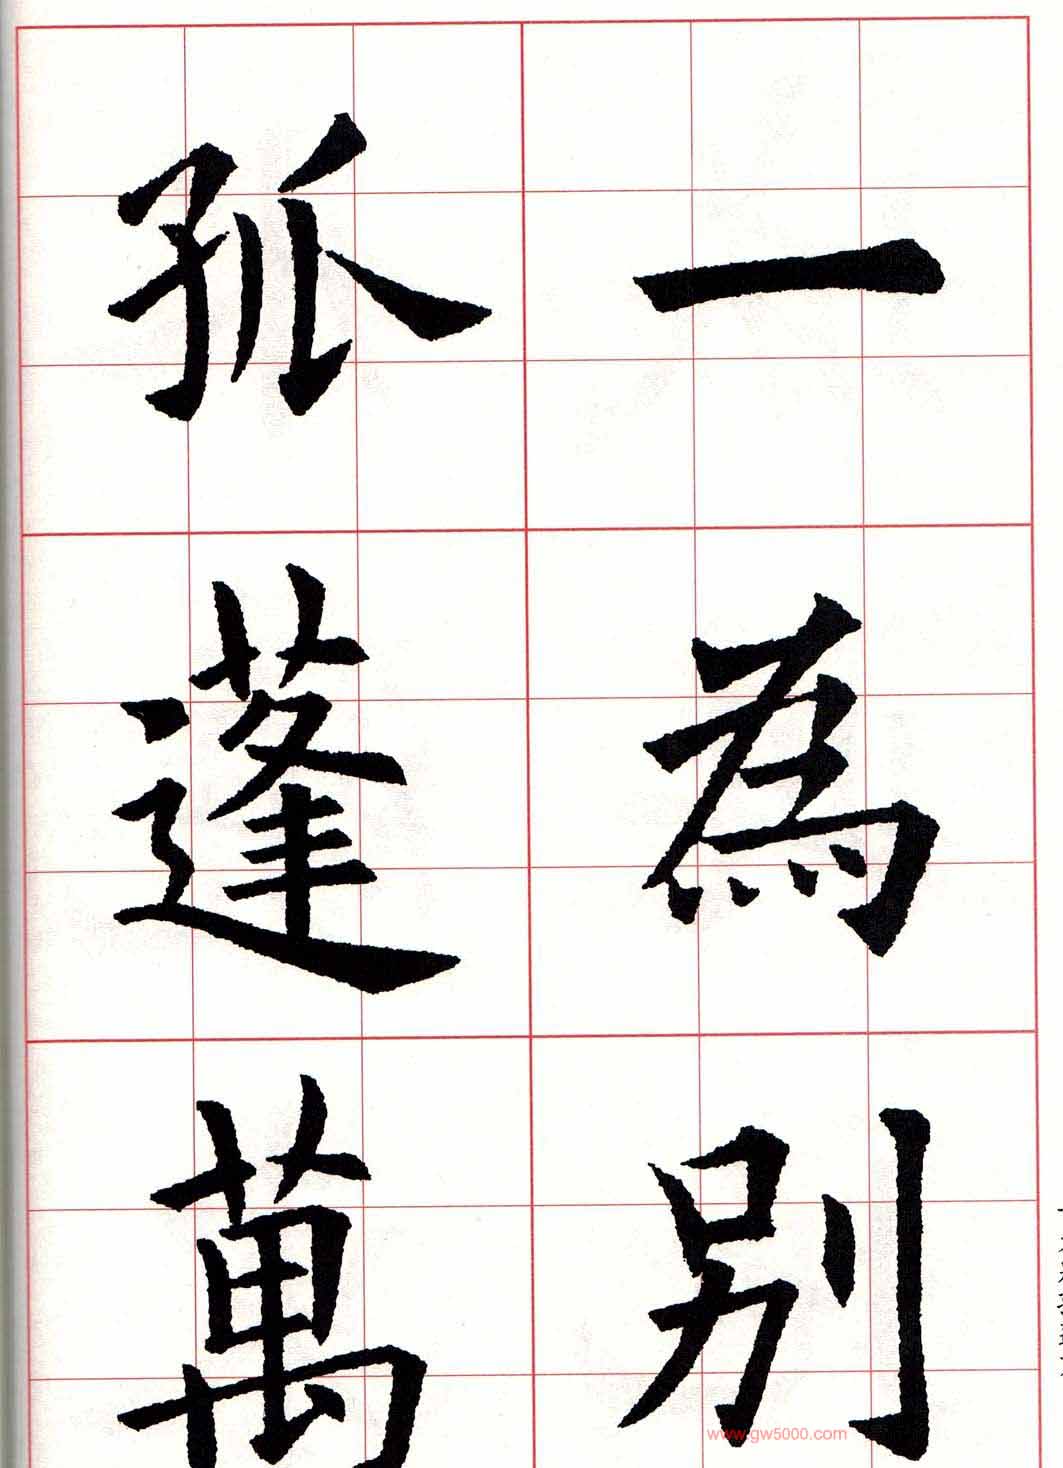 一為別
孤蓬萬
www.gw5000.com